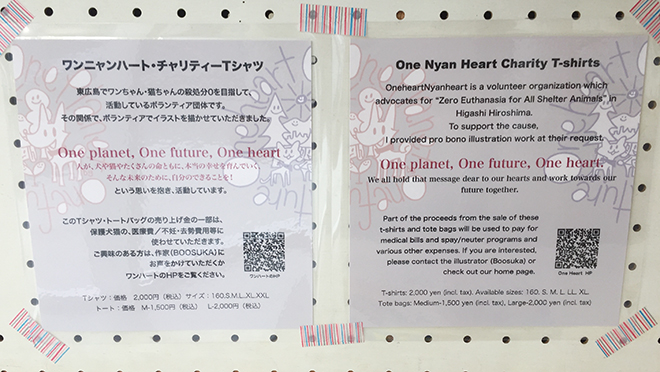 ワンニャンハート・チャリティーTシャツ
東広島でワンちゃん・猫ちゃんの殺処分0を目指して、
活動しているボランティア団体です。
その関係で、ボランティアでイラストを描かせていただきました。
One planet, One future, One heart
人が、犬や猫やたくさんの命とともに、本当の幸せを育んでいく、
そんな未来のために、自分のできることを！
という思いを抱き、活動しています。
このTシャツ・トートバッグの売り上げ金の一部は、
保護犬猫の、医療費／不妊・去勢費用等に
使わせていただきます。
ご興味のある方は、作家（BOOSUKA）に
お声をかけていただくか
ワンハートのHPをご覧ください。
ワンハートのHP
Tシャツ：価格 2,000円（税込）サイズ：160.S.M.L.XL.XXL
トート：価格 M-1,500円（税込） L-2,000円（税込）
One Nyan Heart Charity T-shirts
OneheartNyanheart is a volunteer organization which
advocates for "Zero Euthanasia for All Shelter Animals" in
Higashi Hiroshima.
To support the cause,
I provided pro bono illustration work at their request.
One planet, One future, One heart.
We all hold that message dear to our hearts and work towards our
future together.
Part of the proceeds from the sale of these
t-shirts and tote bags will be used to pay for
medical bills and spay/neuter programs and
various other expenses. If you are interested,
please contact the illustrator (Boosuka) or
check out our home page.
One Heart HP
T-shirts: 2,000 yen (incl. tax). Available sizes: 160, S, M, L, LL, XL
Tote bags: Medium-1,500 yen (incl. tax), Large-2,000 yen (incl. tax)